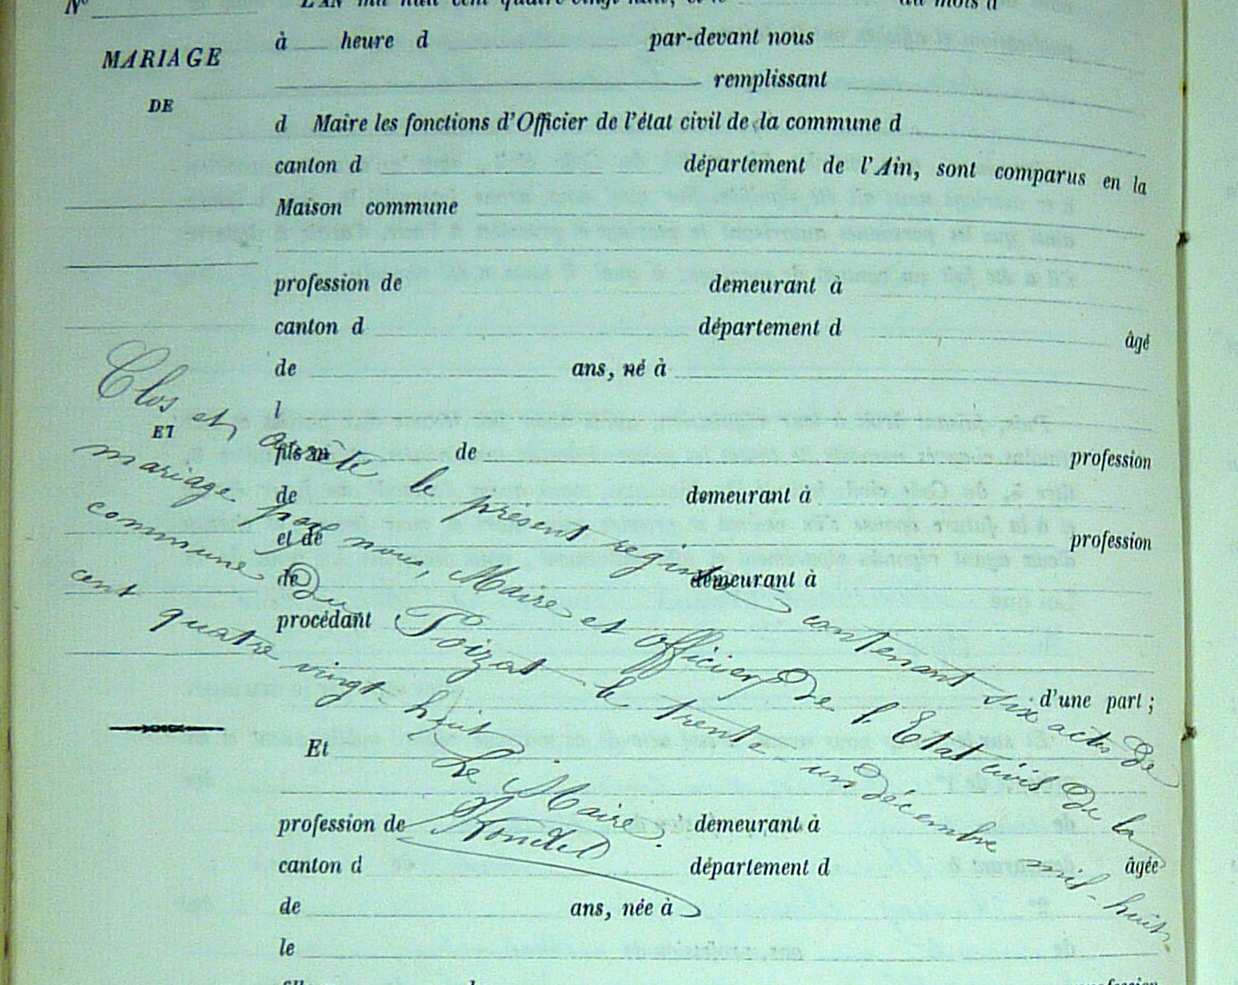 N°
L'AN mil huit cent quatre-vingt-huit, et le du mois d
à heure d par-devant nous
MARIAGE
remplissant
DE
d Maire les fonctions d'Officier de l'état civil de la commune d
canton d département de l'Ain, sont comparus en la
Maison commune
profession de demeurant à
canton d département d âgé
de ans, né à
l
ET
fils de profession
de demeurant à
et de profession
de demeurant à
procédant
d'une part ;
Clos et arrêté le présent registre contenant six actes de
mariage par nous, Maire et officier de l'Etat civil de la
commune du Poizat le trente-un décembre mil-huit
cent quatre vingt-huit
Le Maire.
Et
profession de demeurant à
canton d département d âgée
de ans, née à
le
profession